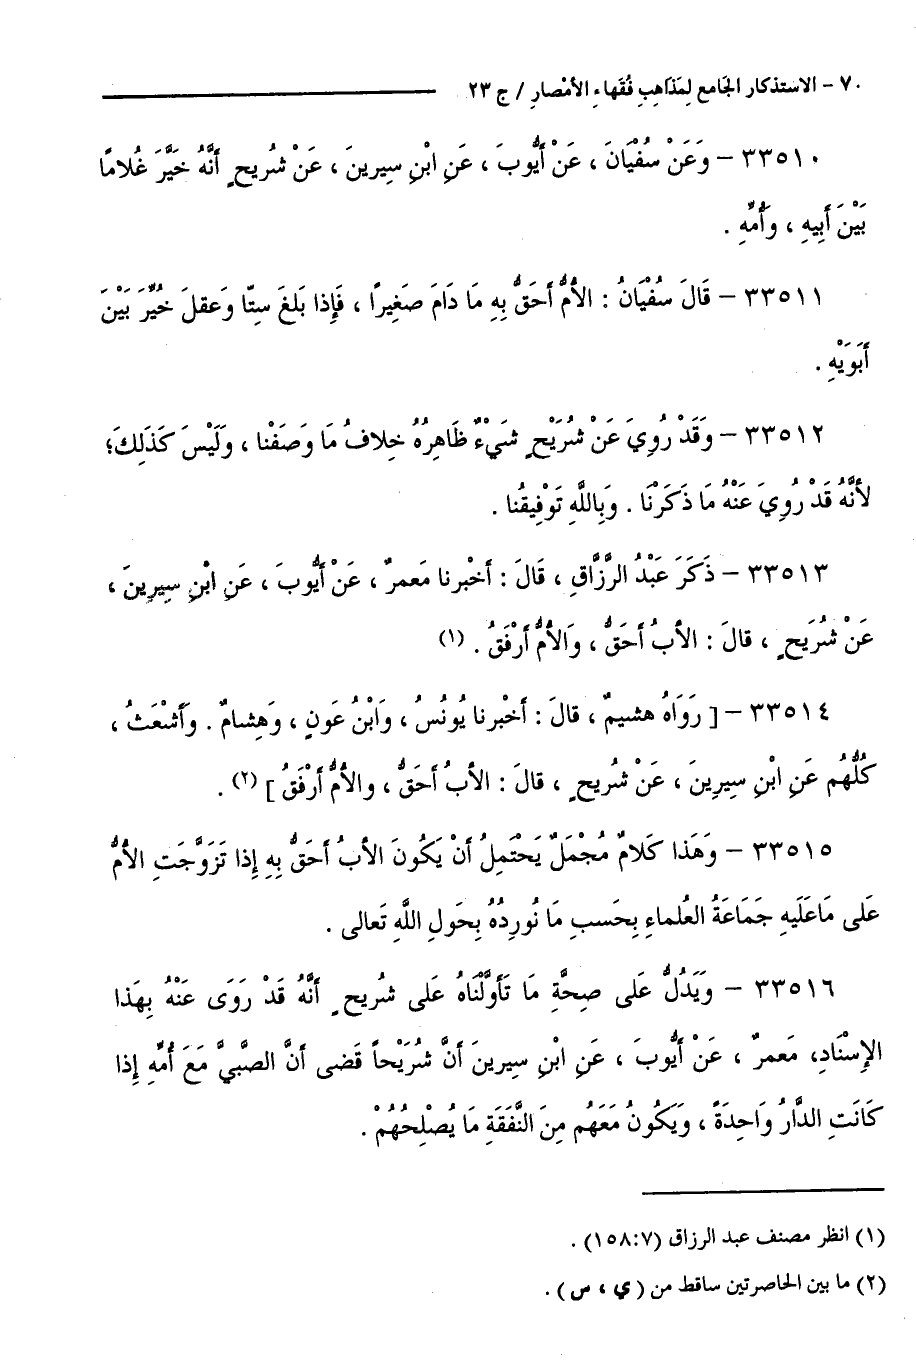 ٧٠ - الاستذكار الجَامع لِمَذاهِبِ فُقَهاءِ الأمْصارِ / ج ٢٣
٣٣٥١٠ - وَعَنْ سُفْيَانَ ، عَنْ أَيُّوبَ ، عَنِ ابْنِ سِيرينَ ، عَنْ شُريحٍ أَنَّهُ خَيَّرَ غُلامًا
بَيْنَ أَبِيهِ ، وَأُمِّهِ .
٣٣٥١١ - قَالَ سُفْيَانُ : الأمُّ أَحَقُّ بِهِ مَا دَامَ صَغِيرًا ، فَإِذا بَلغَ سِتّا وَعقلَ خُيِّرَ بَيْنَ
أَبَوَيْهِ .
٣٣٥١٢ - وَقَدْ رُوِيَ عَنْ شُرَيْحٍ شَيْءٌ ظَاهِرُهُ خِلافُ مَا وَصَفْنا ، وَلَيْسَ كَذَلِكَ؛
لأنَّهُ قَدْ رُوِيَ عَنْهُ مَا ذَكَرْنَا . وَبِاللَّهِ تَوْفِيقُنا .
٣٣٥١٣ - ذَكَرَ عَبْدُ الرَّزَّاقِ ، قَالَ : أَخْبرنا مَعمرٌ ، عَنْ أَيُّوبَ ، عَنِ ابْنِ سِيرِينَ ،
عَنْ شُرَيحٍ ، قالَ : الأبُ أَحَقُّ ، وَالأمُّ أَرْفَقُ . (١)
٣٣٥١٤ - [ رَوَاهُ هشيمٌ ، قالَ : أَخْبرنا يُونُسُ ، وَابْنُ عَونٍ ، وَهِشامٌ . وَأَشْعَثُ ،
كُلُّهُم عَنِ ابْنِ سِيرِينَ ، عَنْ شُريحٍ ، قالَ : الأبُ أَحَقُّ ، والأمُّ أَرْفَقُ ] (٢) .
٣٣٥١٥ - وَهَذا كَلامٌ مُجْمَلٌ يَحْتَمِلُ أَنْ يَكُونَ الأبُ أَحَقُّ بِهِ إِذا تَزَوَّجَتِ الأمُّ
عَلى مَاعَلَيهِ جَمَاعَةُ العُلماءِ بِحَسبِ مَا نُورِدُهُ بِحَولِ اللَّهِ تَعالى .
٣٣٥١٦ - وَيَدُلُّ عَلى صِحَّةِ مَا تَأَوَّلْنَاهُ عَلى شُريحٍ أَنَّهُ قَدْ رَوَى عَنْهُ بِهَذا
الإِسْنَادِ، مَعمرٌ ، عَنْ أَيُّوبَ ، عَنِ ابْنِ سِيرينَ أَنَّ شُرَيْحاً قَضى أَنَّ الصَّبِيَّ مَعَ أُمِّهِ إِذا
كَانَتِ الدَّارُ وَاحِدَةً ، وَيَكُونُ مَعَهُم مِنَ النَّفَقَةِ مَا يُصْلِحُهُمْ .
(١) انظر مصنف عبد الرزاق (١٥٨:٧) .
(٢) ما بين الحاصرتين ساقط من ( ي ، س ) .